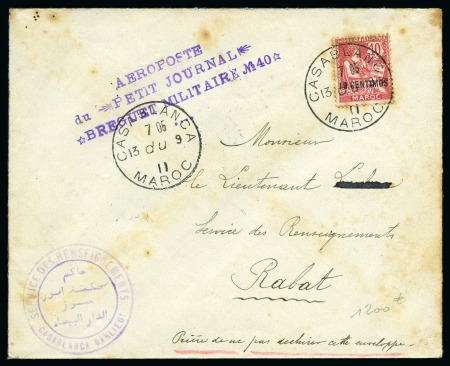 AEROPOSTE
du PETIT JOURNAL
☆BREGUET MILITAIRE №40☆
CASABLANCA
7 05
13 9
11
MAROC
10
10 CENTIMOS
MAROC
CASABLANCA
13
11
MAROC
Monsieur
le Lieutenant
Service des Renseignements
Rabat
SERVICE DES RENSEIGNEMENTS
حاكم
الدار البيضاء
CASABLANCA BANLIEUE
1200
Prière de ne pas déchirer cette enveloppe